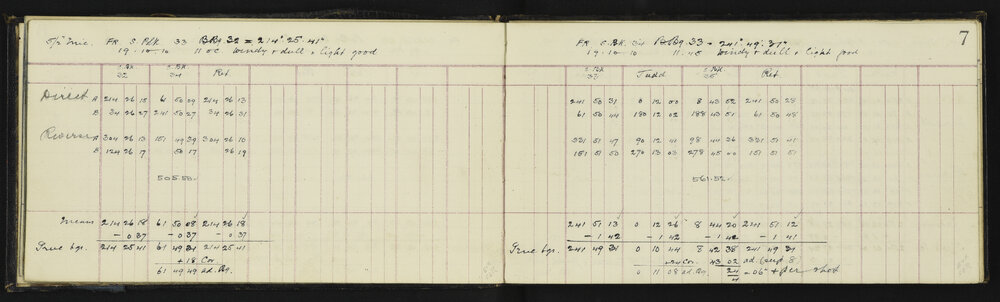 5½ Mic. FR S. Bk. 33 BRg 32 = 214° 25' 41"
19-10-10 11 oc Windy & dull & light good
S.Bk. 32 S.Bk. 34 Ret.
Direct A 214 26 15 61 50 09 214 26 13
B 34 26 27 241 50 27 34 26 31
Reverse A 304 26 13 151 49 39 304 26 10
B 124 26 17 50 17 26 19
505.50
Mean 214 26 18 61 50 08 214 26 18
- 0 37 - 0 37 - 0 37
True bgs. 214 25 41 61 49 31 214 25 41
+ 18 Cor
61 49 49 ad. Bg.
7
FR S. Bk. 34 BRg 33 = 241° 49' 31"
19-10-10 11.45 Windy & dull & light good
S.Bk. 33 Judd S.Bk. 35 Ret.
241 50 31 0 12 00 8 43 52 241 50 28
61 50 44 180 12 02 188 43 51 61 50 48
331 51 47 90 12 41 98 44 36 331 51 41
151 51 50 270 13 03 278 45 00 151 51 51
561.52
241 51 13 0 12 26 8 44 20 241 51 12
- 1 42 - 1 42 - 1 42 - 1 41
True bgs. 241 49 31 0 10 44 8 42 38 241 49 31
+ 24 Cor. 43 02 ad
0 11 08 ad. Bg. 24/4 = 06"